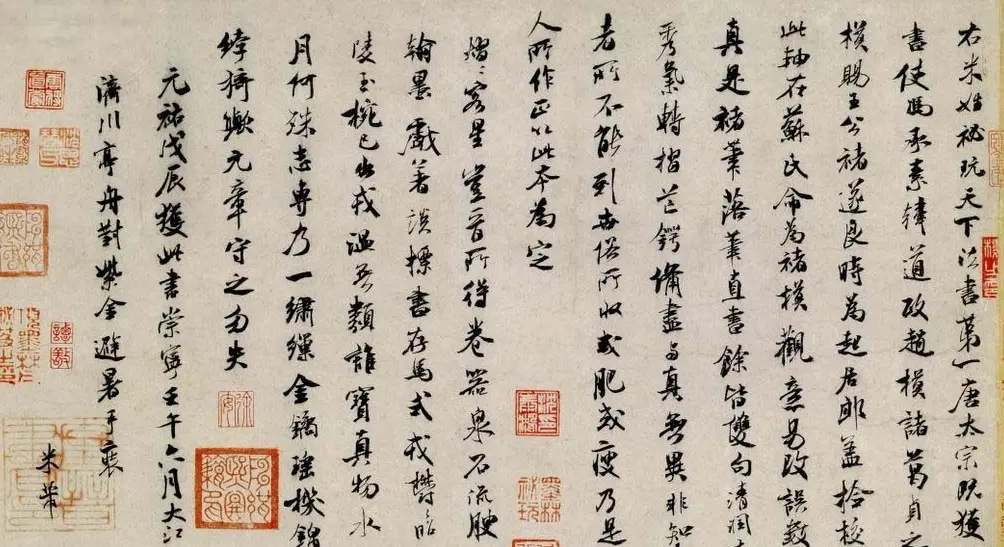 右米姓祕玩天下法書第一唐太宗既獲
書使馮承素韓道政趙模諸葛貞
模賜王公褚遂良時為起居郎蓋檢校
此軸在蘇氏命為褚模觀意易改誤數
真是褚筆落筆直書餘皆雙勾清潤
秀氣轉摺芒鍔備盡与真無異非知
者所不能到世俗所收或肥或瘦乃是
人所作正以此本為定
熠々客星豈晉所得卷器泉石流腴
翰墨戲著談標書存馬式戎欝昭
陵玉椀已出戎溫無類誰寶真物水
月何殊志專乃一繡繅金鐍瑤機錦
綷猗歟元章守之勿失
元祐戊辰獲此書崇寧壬午六月大江
濟川亭舟對紫金避暑手裝
米芾